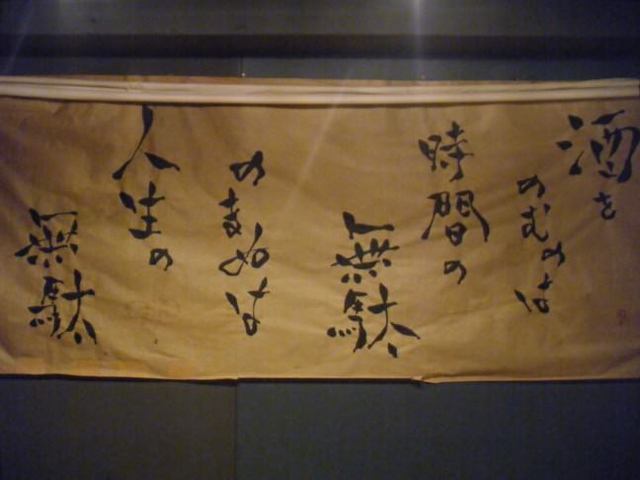 酒を
のむのは
時間の
無駄
のまぬは
人生の
無駄